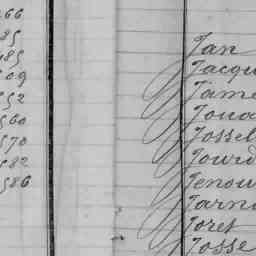 66
85
485
09
552
560
570
582
586
Jan
Jacqu
Jame
Joua
Jossel
Jourd
Jenou
Jarn
Joret
Josse